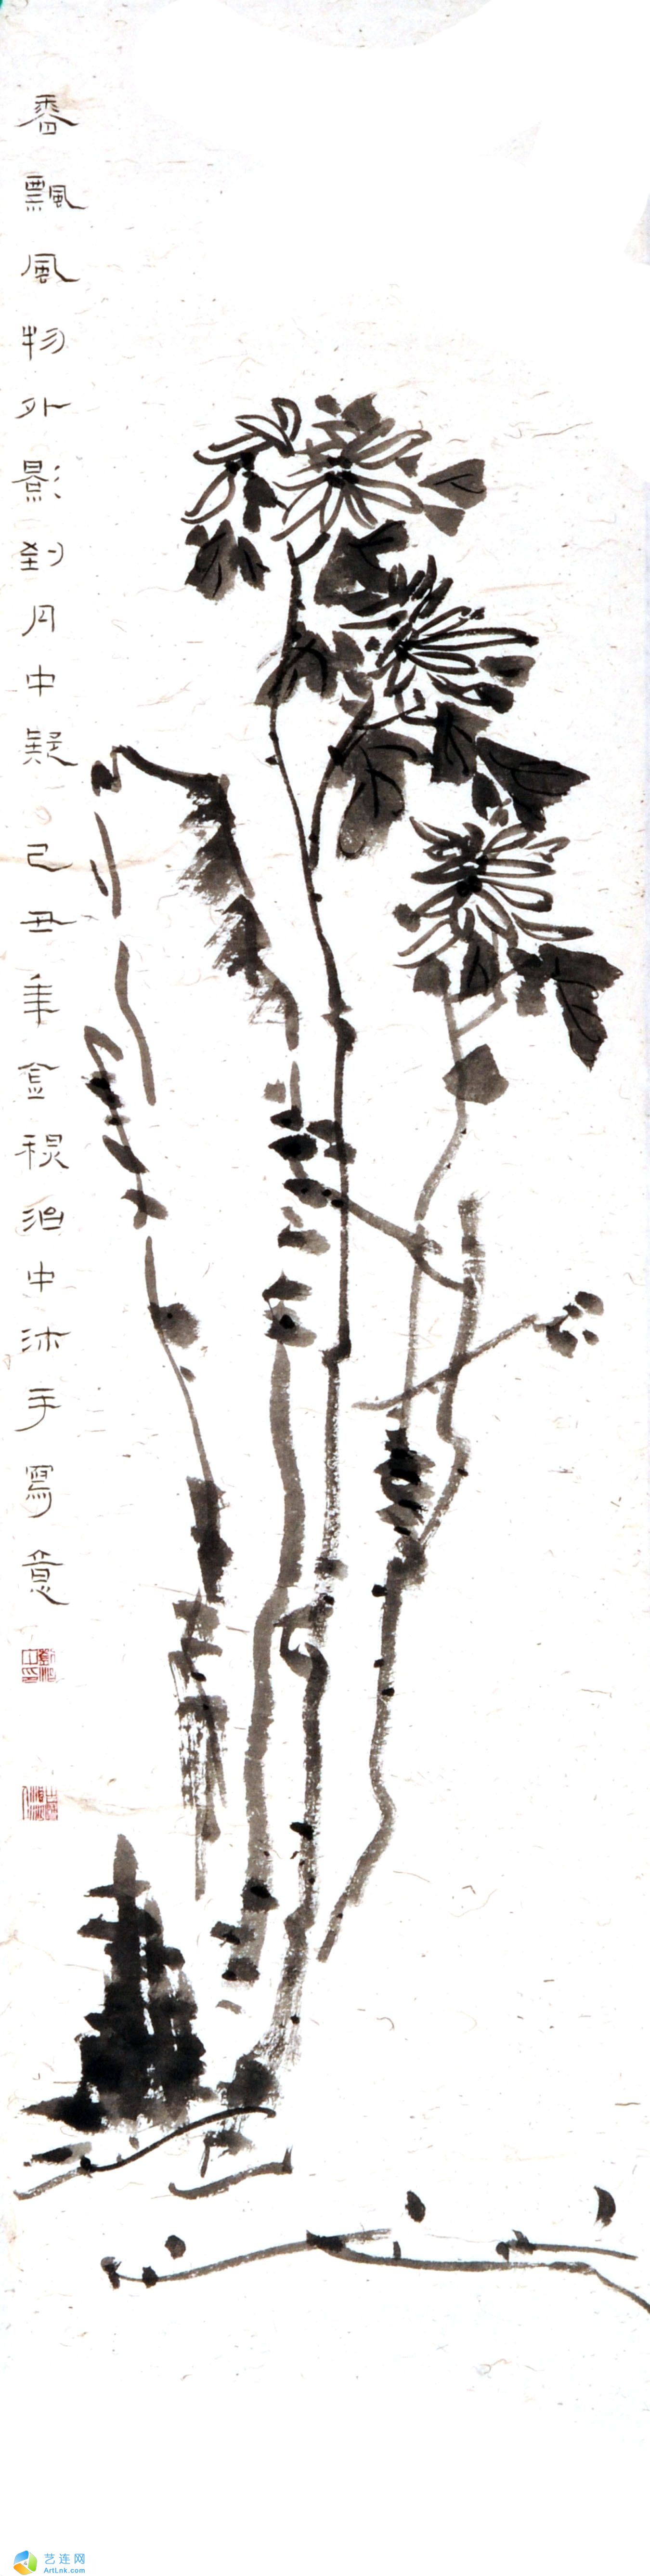 香飄風物外影到月中疑己丑年治中沐手寫意
艺连网
ArtLnk.com